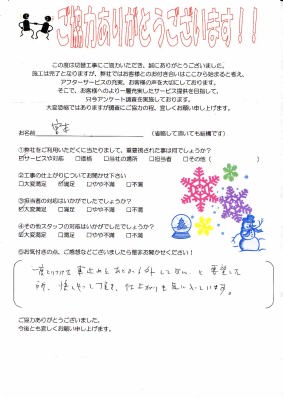 ご協力ありがとうございます！！
この度は切替工事にご協力いただき、誠にありがとうございました。
施工は完了となりますが、弊社ではお客様とのお付き合いはここから始まると考え、
アフターサービスの充実、お客様の声を大切にしております。
そこで、お客様へのより一層充実したサービス提供を目指して、
只今アンケート調査を実施しております。
大変恐縮ではありますが調査にご協力の程、宜しくお願い申し上げます。
お名前 宮本 （省略して頂いても結構です）
①弊社をご利用いただくに当たりまして、重要視された事は何でしょうか？
☑サービス対応 □価格 □当社の場所 □担当者 □その他（ ）
②工事の仕上がりについてお聞かせ下さい
□大変満足 ☑満足 □やや不満 □不満
③担当者の対応はいかがでしたでしょうか？
☑大変満足 □満足 □やや不満 □不満
④その他スタッフの対応はいかがでしたでしょうか？
☑大変満足 □満足 □やや不満 □不満
⑤お気付きの点、ご感想などございましたら是非お聞かせください！
と要望した
所、
仕上がりも気に入っています。
ご協力ありがとうございました。
今後とも宜しくお願い申し上げます。